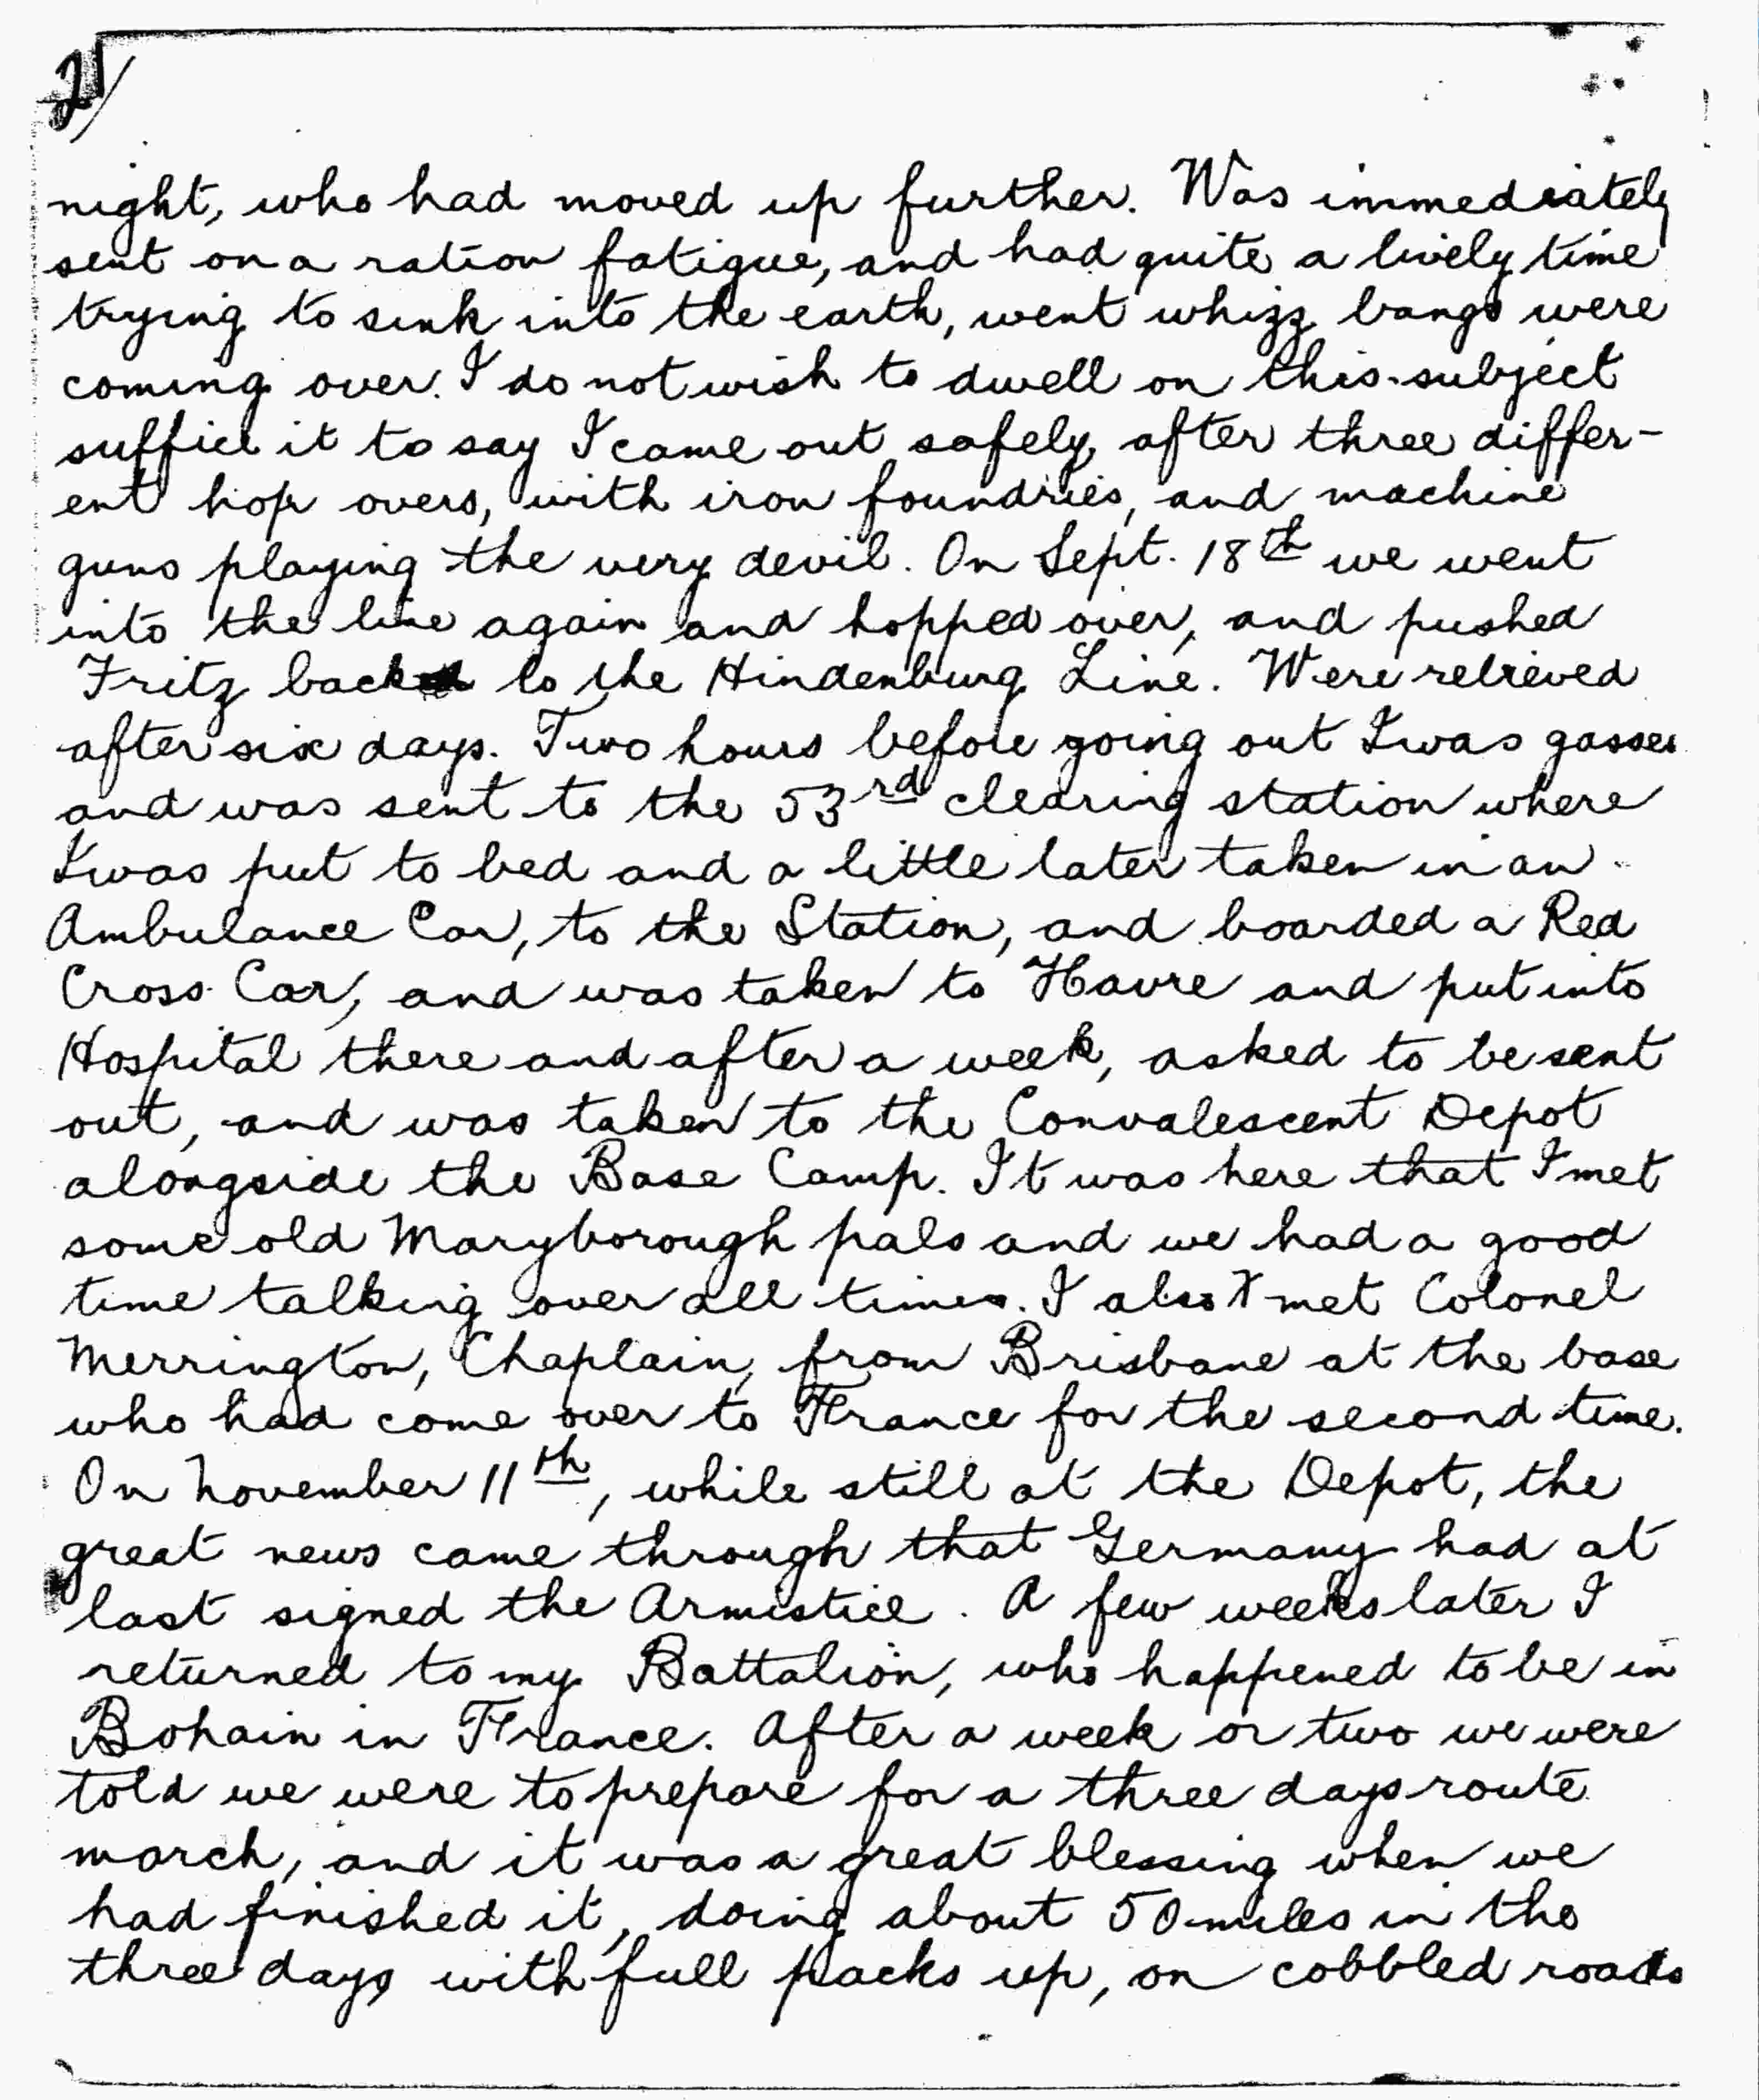 21/
night, who had moved up further. Was immediately
sent on a ration fatigue, and had quite a lively time
trying to sink into the earth, went whizz bangs were
coming over. I do not wish to dwell on this subject
suffice it to say I came out safely, after three differ-
ent hop overs, with iron foundries, and machine
guns playing the very devil. On Sept. 18th we went
into the line again and hopped over, and pushed
Fritz back to the Hindenburg Line. Were relieved
after six days. Two hours before going out I was gassed
and was sent to the 53rd clearing station where
I was put to bed and a little later taken in an
Ambulance Car, to the Station, and boarded a Red
Cross Car, and was taken to Havre and put into
Hospital there and after a week, asked to be sent
out, and was taken to the Convalescent Depot
alongside the Base Camp. It was here that I met
some old Maryborough pals and we had a good
time talking over all times. I also met Colonel
Merrington, Chaplain, from Brisbane at the base
who had come over to France for the second time.
On November 11th, while still at the Depot, the
great news came through that Germany had at
last signed the Armistice. A few weeks later I
returned to my Battalion, who happened to be in
Bohain in France. After a week or two we were
told we were to prepare for a three days route
march, and it was a great blessing when we
had finished it, doing about 50 miles in the
three days with full packs up, on cobbled roads